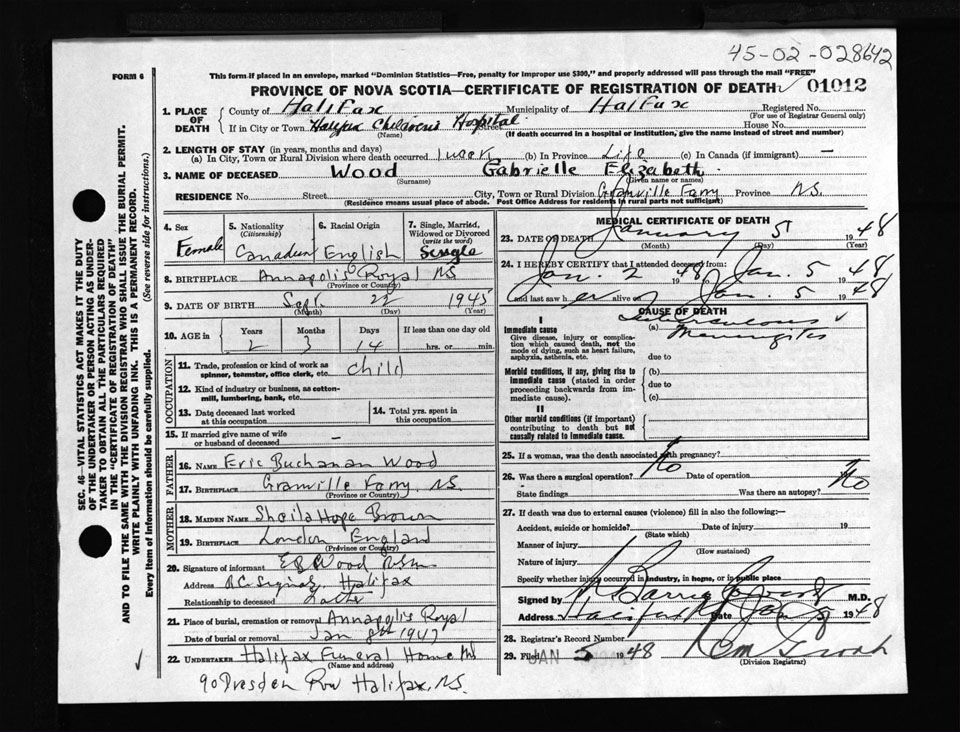 45-02-028642
FORM 6
This form if placed in an envelope, marked "Dominion Statistics—Free, penalty for improper use $300," and properly addressed will pass through the mail "FREE"
PROVINCE OF NOVA SCOTIA—CERTIFICATE OF REGISTRATION OF DEATH 01012
1. PLACE OF DEATH
County of Halifax Municipality of Halifax Registered No.
(For use of Registrar General only)
If in City or Town Halifax Childrens Hospital Street House No.
(Name) (If death occurred in a hospital or institution, give the name instead of street and number)
2. LENGTH OF STAY (in years, months and days)
(a) In City, Town or Rural Division where death occurred 1 week (b) In Province Life (c) In Canada (if immigrant) —
3. NAME OF DECEASED Wood Gabrielle Elizabeth
(Surname) (Given name or names)
RESIDENCE No. Street City, Town or Rural Division Granville Ferry Province N.S.
(Residence means usual place of abode. Post Office Address for residents in rural parts not sufficient)
4. Sex Female
5. Nationality (Citizenship) Canadian
6. Racial Origin English
7. Single, Married, Widowed or Divorced (write the word) Single
8. BIRTHPLACE Annapolis Royal NS
(Province or Country)
9. DATE OF BIRTH Sept. 22 1945
(Month) (Day) (Year)
10. AGE in Years Months Days If less than one day old
2 3 14 hrs. or min.
OCCUPATION
11. Trade, profession or kind of work as spinner, teamster, office clerk, etc. child
12. Kind of industry or business, as cotton-mill, lumbering, bank, etc.
13. Date deceased last worked at this occupation
14. Total yrs. spent in this occupation
15. If married give name of wife or husband of deceased —
FATHER
16. NAME Eric Buchanan Wood
17. BIRTHPLACE Granville Ferry, N.S.
(Province or Country)
MOTHER
18. MAIDEN NAME Sheila Hope Brown
19. BIRTHPLACE London England
(Province or Country)
20. Signature of informant E B Wood
Address R.C. Signals, Halifax
Relationship to deceased Father
21. Place of burial, cremation or removal Annapolis Royal
Date of burial or removal Jan 8th 1947
22. UNDERTAKER Halifax Funeral Home
(Name and address)
90 Dresden Row Halifax, N.S.
MEDICAL CERTIFICATE OF DEATH
23. DATE OF DEATH January 5 1948
(Month) (Day) (Year)
24. I HEREBY CERTIFY that I attended deceased from:
Jan. 2 1948 to Jan. 5 1948
and last saw her alive on Jan. 5 1948
CAUSE OF DEATH
I
Immediate cause (a) Tuberculous Meningitis
Give disease, injury or complication which caused death, not the mode of dying, such as heart failure, asphyxia, asthenia, etc.
due to
Morbid conditions, if any, giving rise to immediate cause (stated in order proceeding backwards from immediate cause).
(b)
due to
(c)
II
Other morbid conditions (if important) contributing to death but not causally related to immediate cause.
25. If a woman, was the death associated with pregnancy? No
26. Was there a surgical operation? Date of operation
State findings Was there an autopsy? No
27. If death was due to external causes (violence) fill in also the following:—
Accident, suicide or homicide? Date of injury 19
(State which)
Manner of injury
(How sustained)
Nature of injury
Specify whether injury occurred in industry, in home, or in public place
Signed by Barrie M.D.
Address Halifax Date Jan 5 1948
28. Registrar's Record Number
29. Filed JAN 5 1948
(Division Registrar)
SEC. 46—VITAL STATISTICS ACT MAKES IT THE DUTY
OF THE UNDERTAKER OR PERSON ACTING AS UNDER-
TAKER TO OBTAIN ALL THE PARTICULARS REQUIRED
IN THE "CERTIFICATE OF REGISTRATION OF DEATH"
AND TO FILE THE SAME WITH THE DIVISION REGISTRAR WHO SHALL ISSUE THE BURIAL PERMIT.
WRITE PLAINLY WITH UNFADING INK. THIS IS A PERMANENT RECORD.
Every item of information should be carefully supplied. (See reverse side for instructions.)